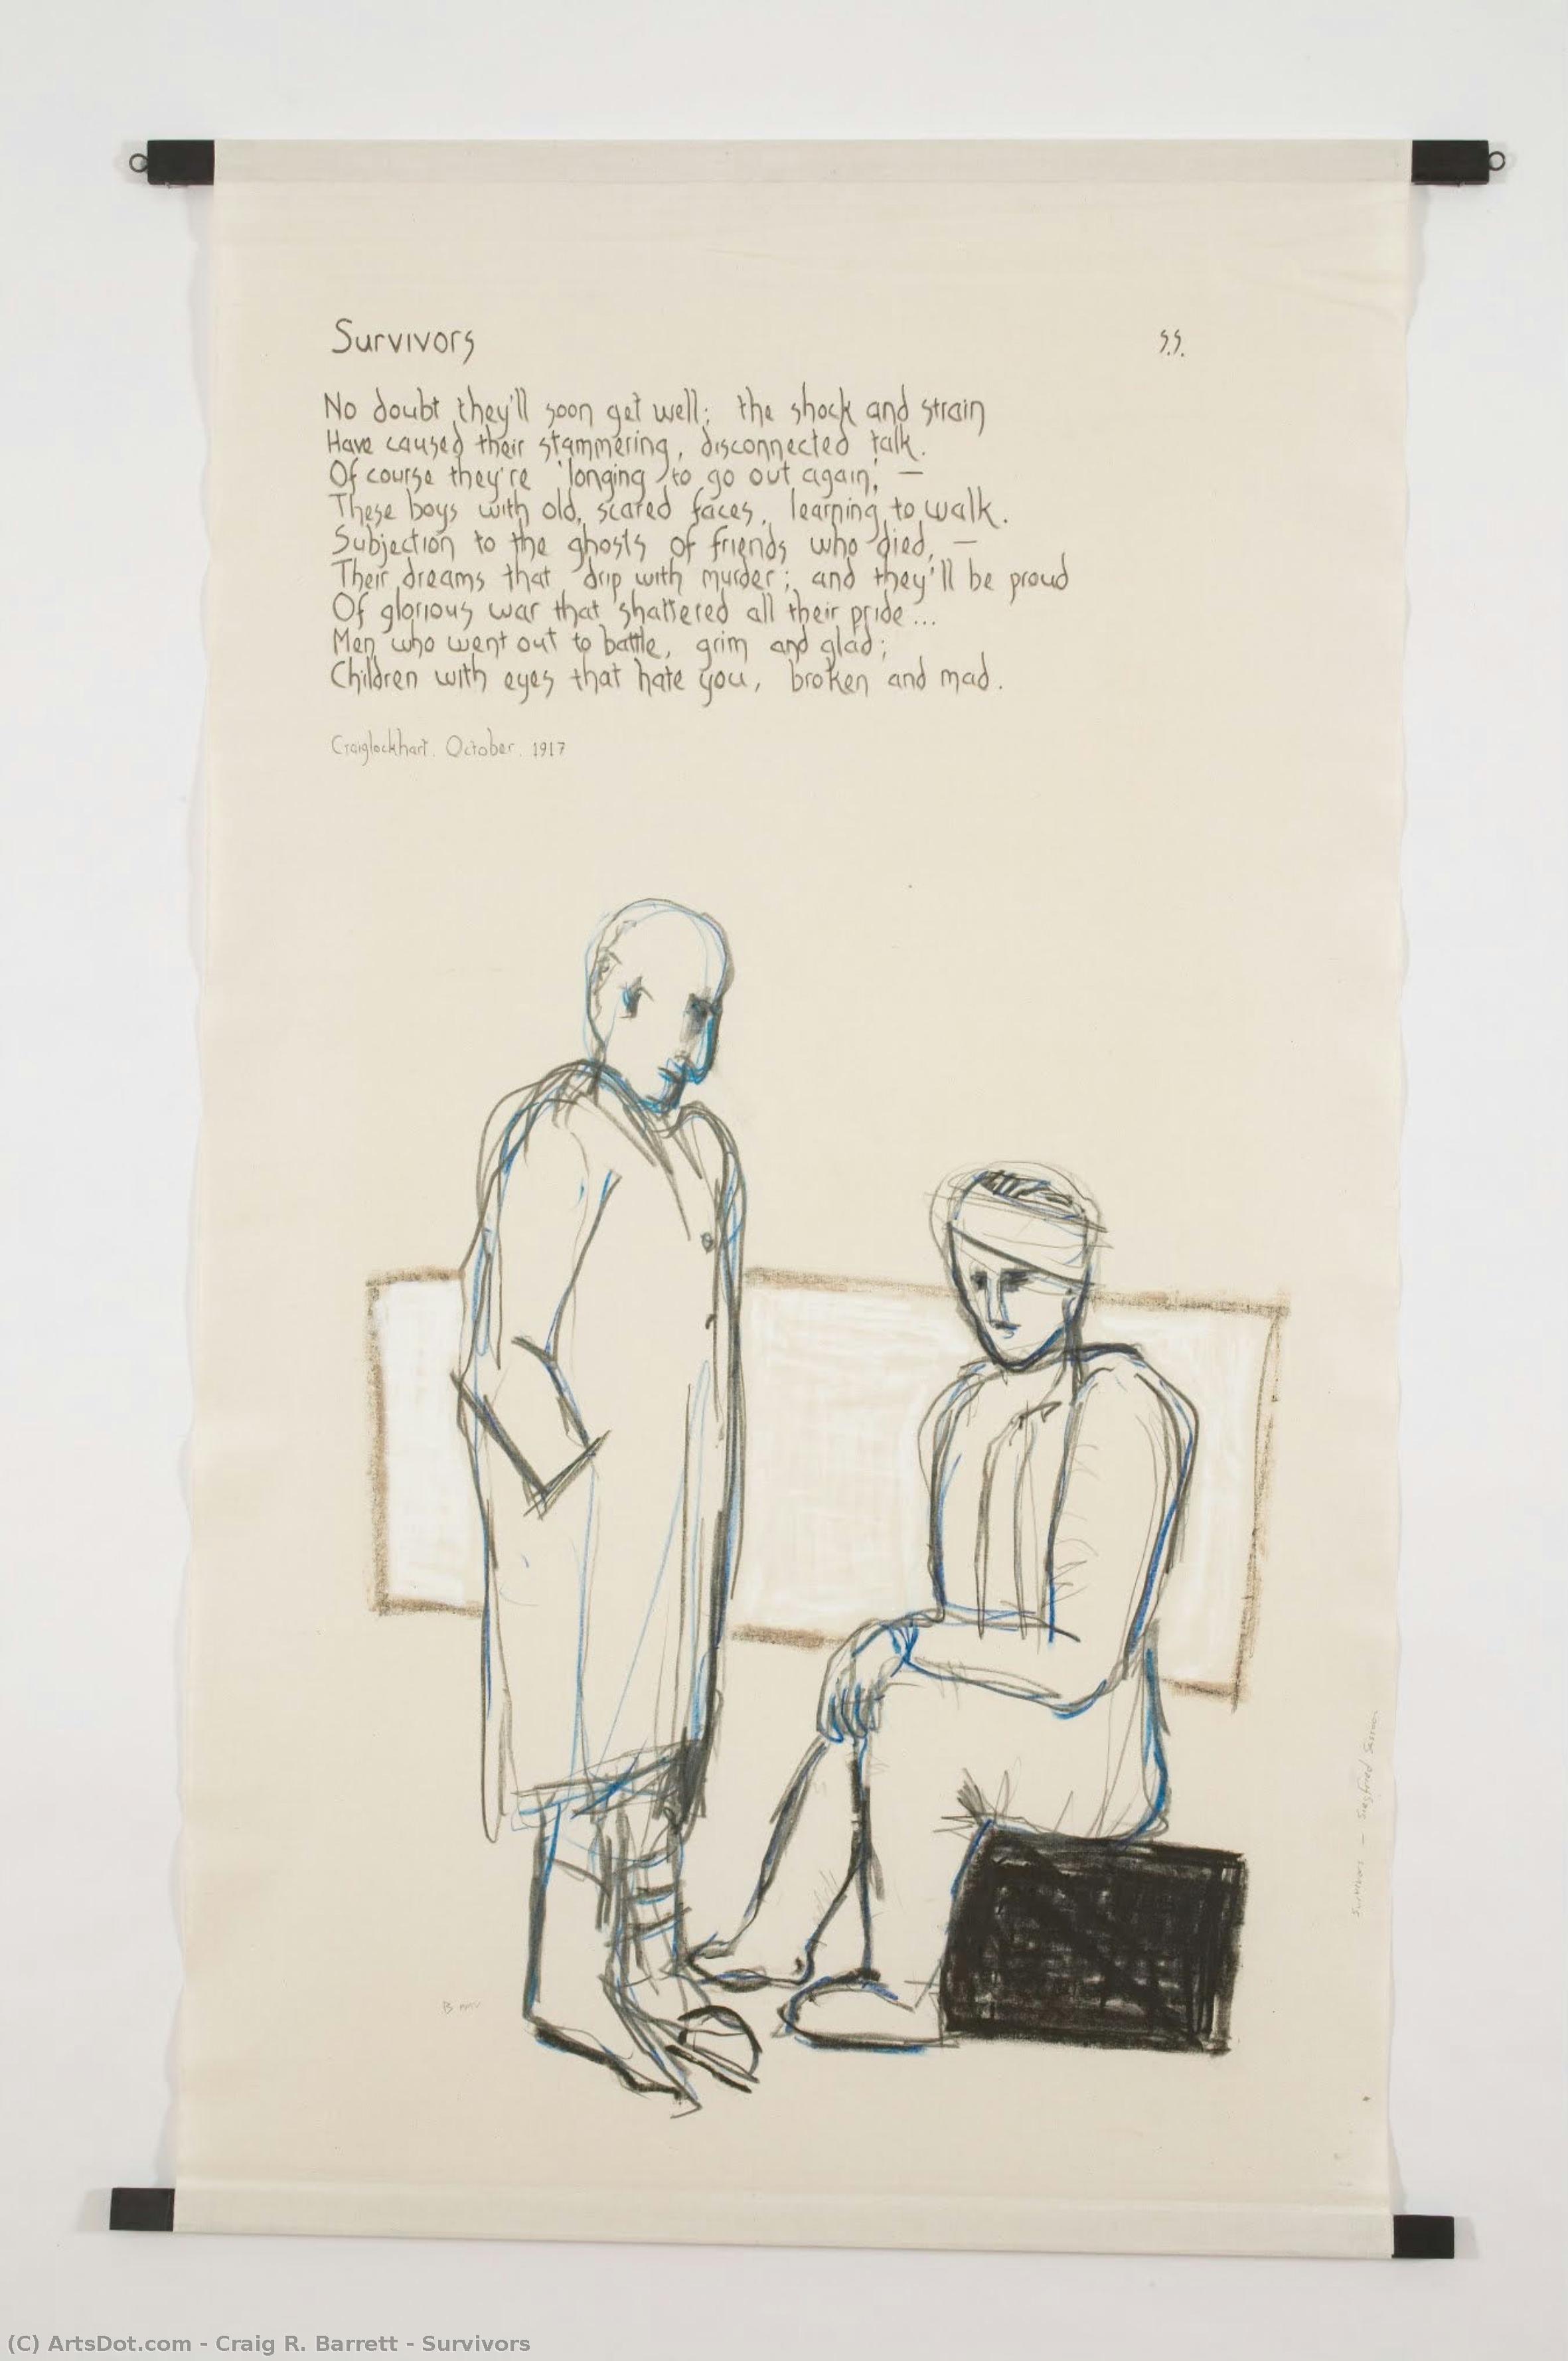 Survivors
S.S.
No doubt they'll soon get well; the shock and strain
Have caused their stammering, disconnected talk.
Of course they're 'longing to go out again,' —
These boys with old, scared faces, learning to walk.
Subjection to the ghosts of friends who died, —
Their dreams that drip with murder; and they'll be proud
Of glorious war that shattered all their pride...
Men who went out to battle, grim and glad;
Children with eyes that hate you, broken and mad.
Craiglockhart. October. 1917
Survivors — Siegfried Sassoon
(C) ArtsDot.com - Craig R. Barrett - Survivors